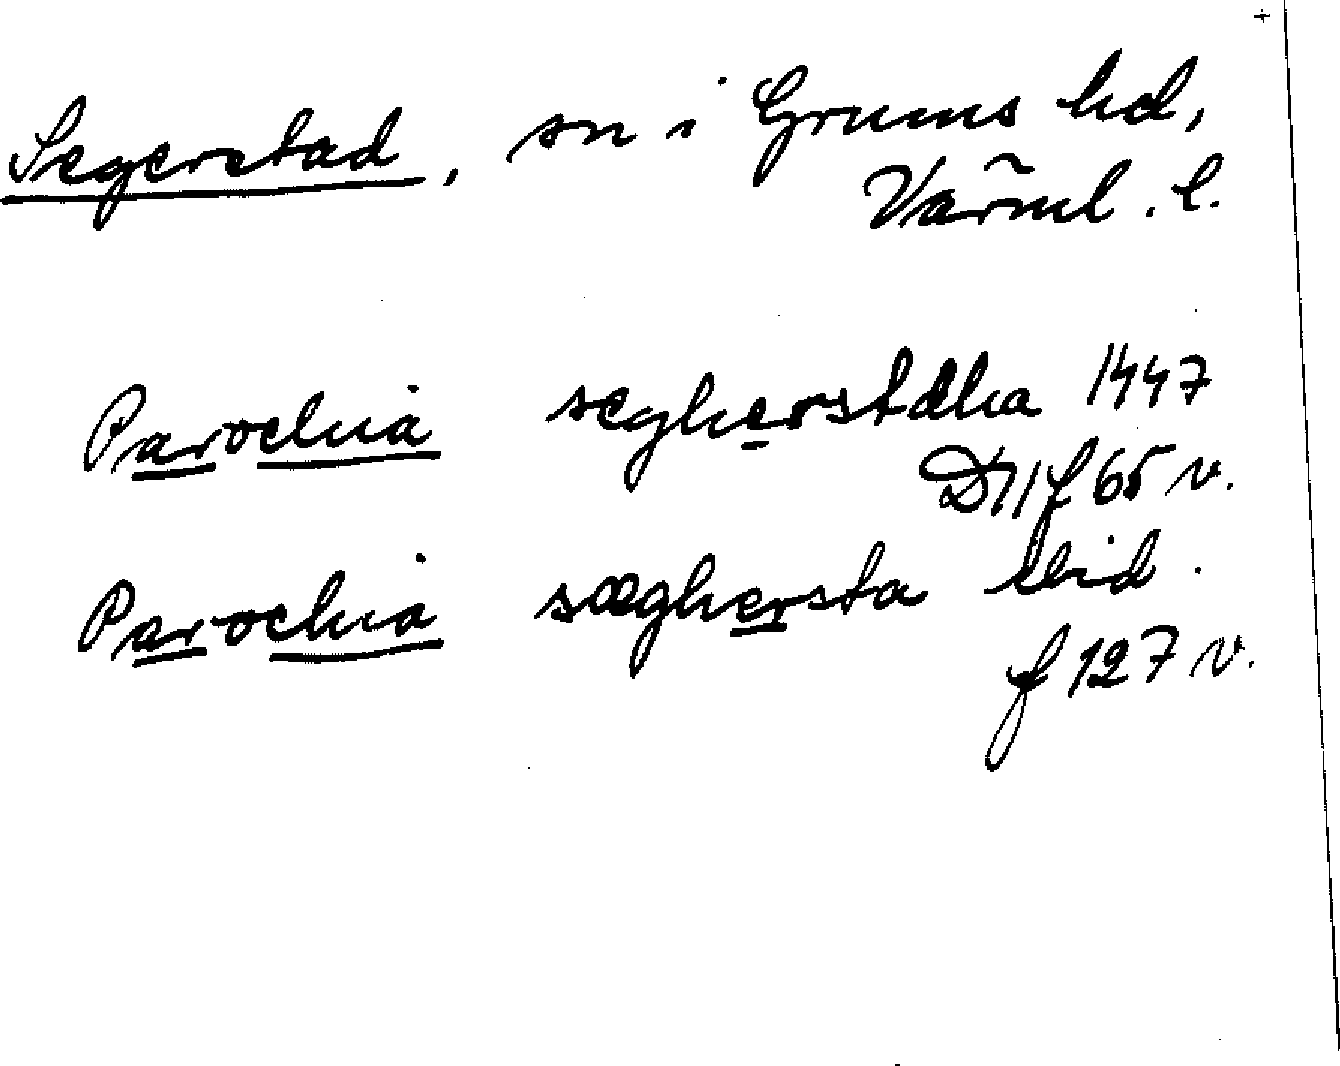 Segerstad, sn i Grums hd,
Värml. l.
Parochia segherstdha 1447
D11 f 65 v.
Parochia sæghersta ibid.
f 127 v.